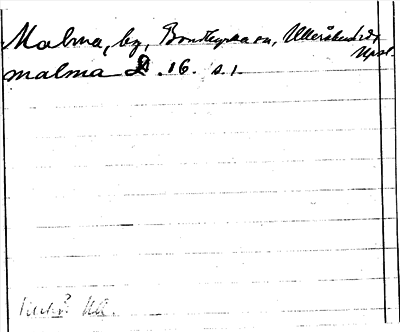 Malma, by, Bondkyrka sn, Ulleråkers hd
Upsl.
malma D. 16. s. 1.